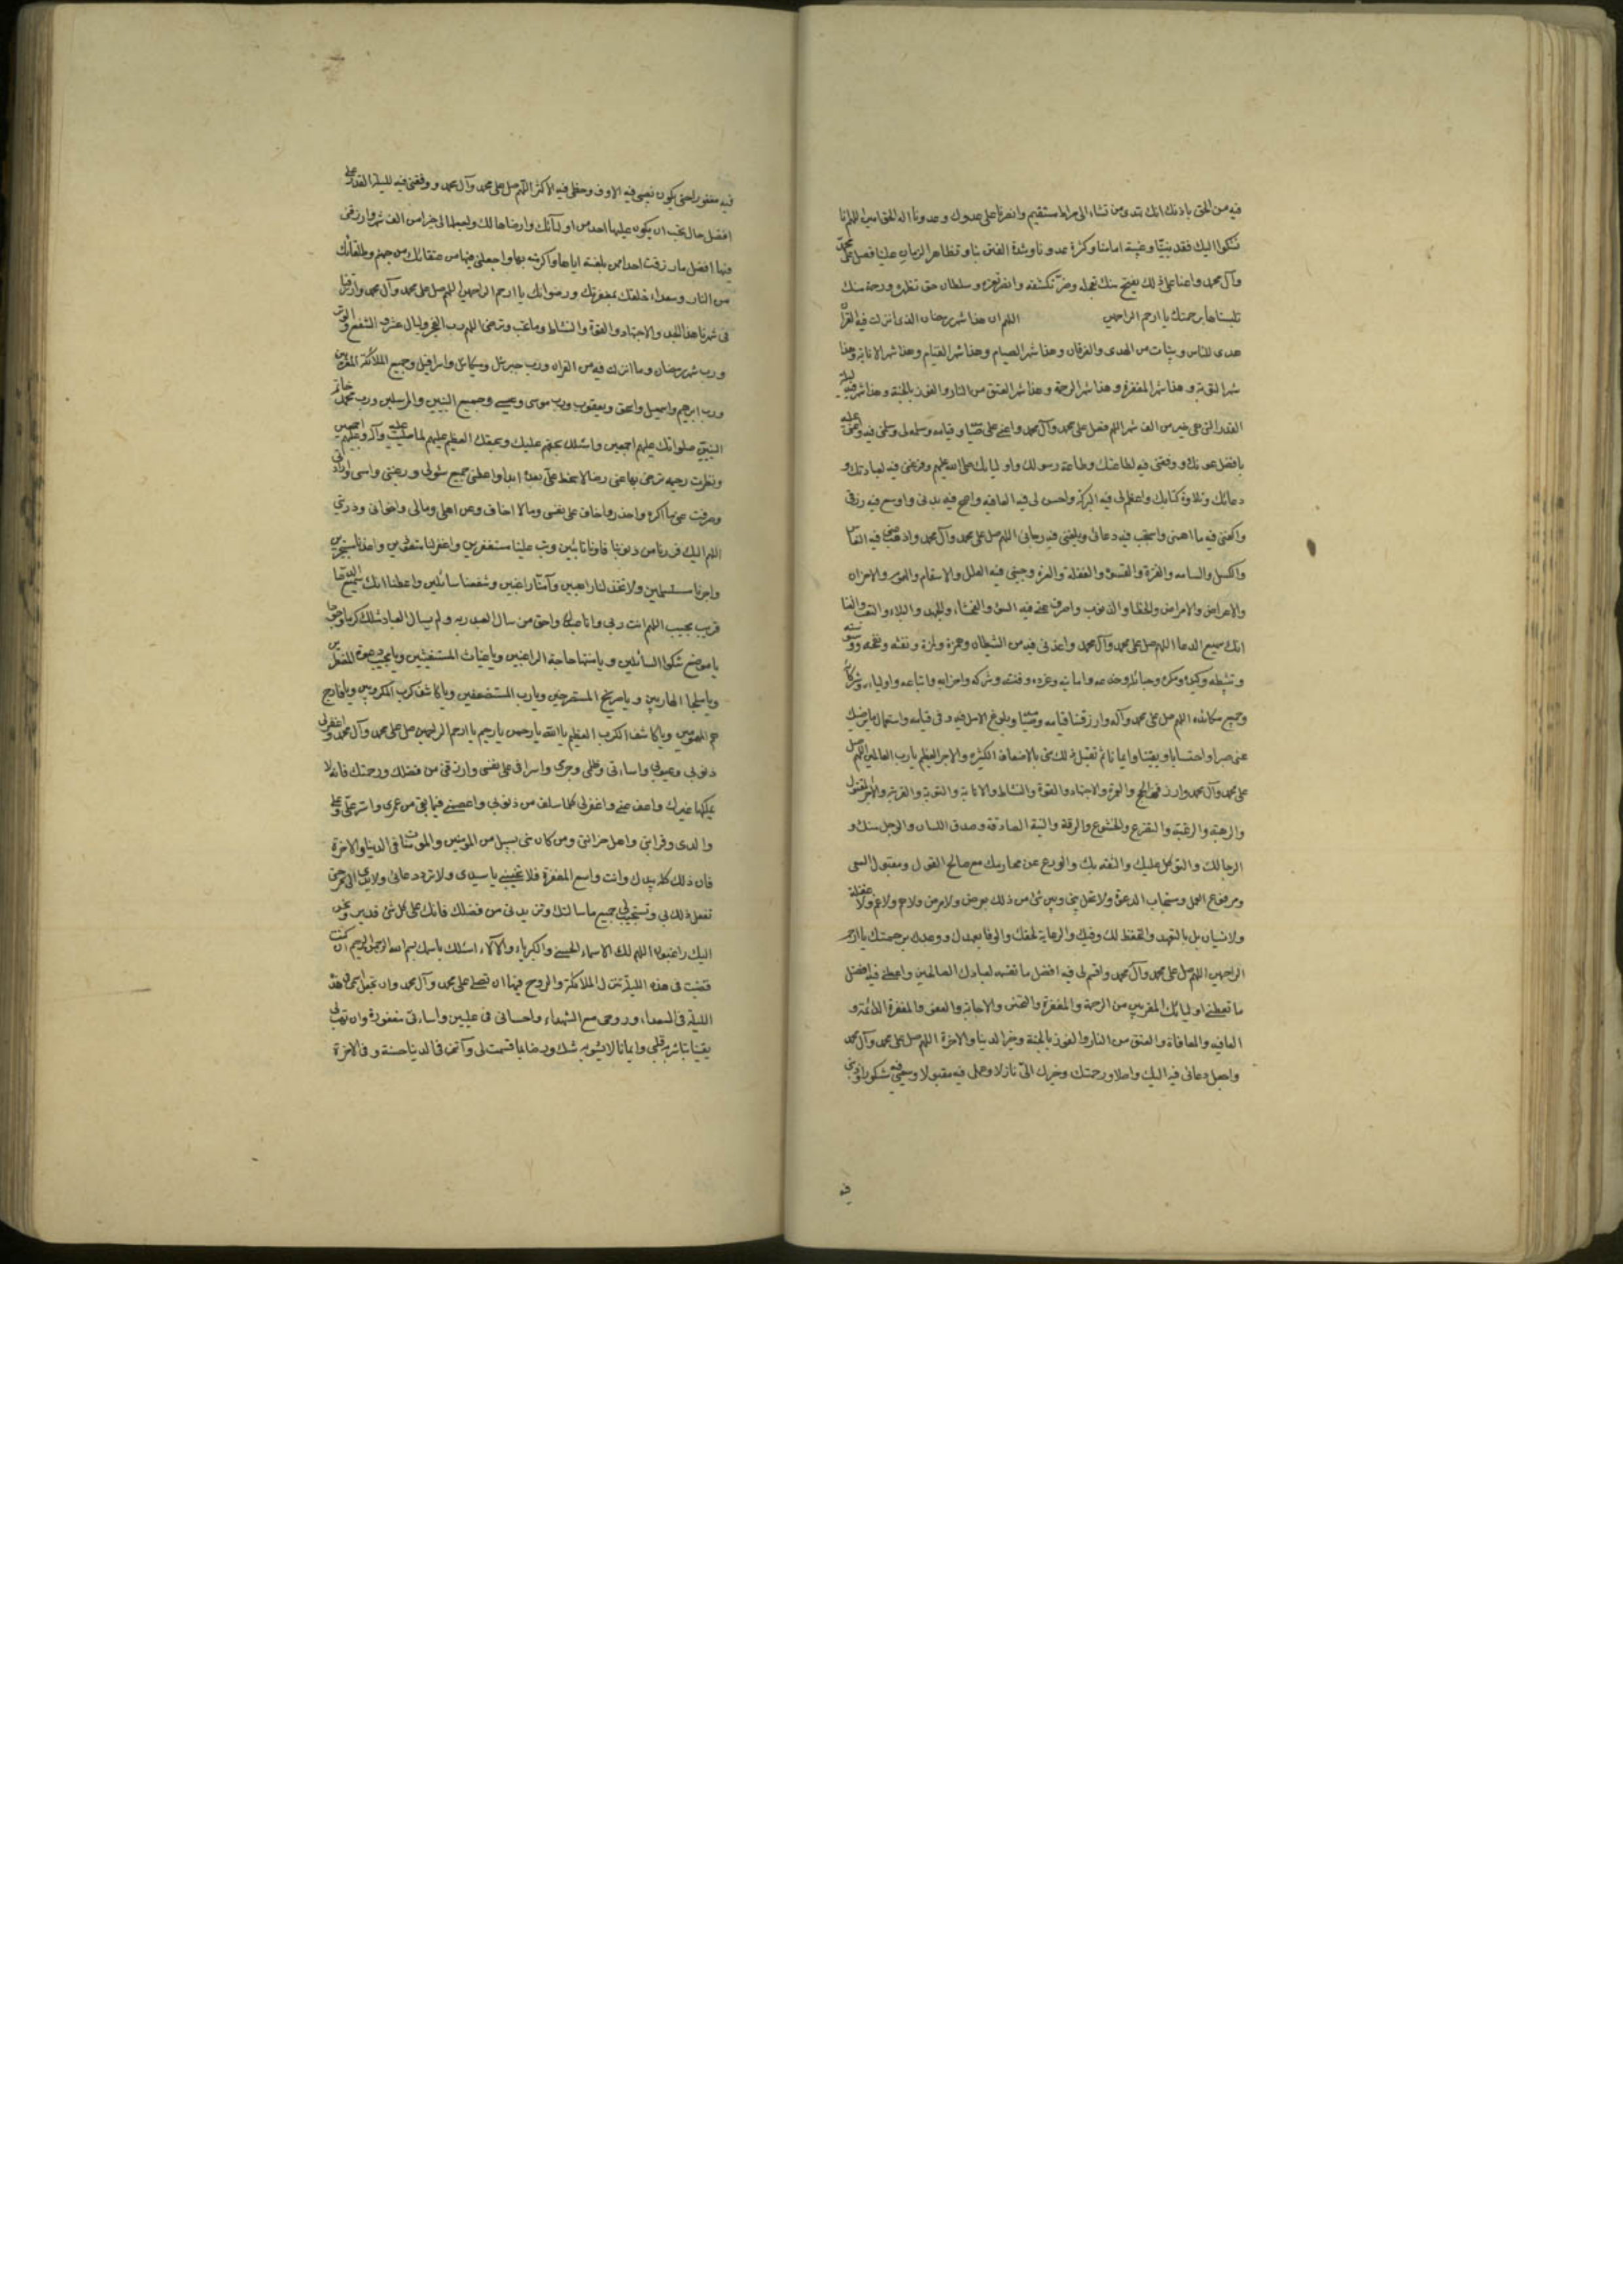 فيه من الحق باذنك انك تهدى من تشاء الى صراط مستقيم وانصرنا على عدوك وعدونا اله الحق امين اللهم انا
نشكوا اليك فقد نبينا وغيبة امامنا وكثرة عدونا وشدة الفتن بنا وتظاهر الزمان علينا فصل على محمد
وآل محمد واعنا على ذلك بفتح منك تعجله وضر تكشفه ونصر تعزه وسلطان حق تظهره ورحمة منك
تلبسناها برحمتك يا ارحم الراحمين اللهم ان هذا شهر رمضان الذى انزلت فيه القرآن
هدى للناس وبينات من الهدى والفرقان وهذا شهر الصيام وهذا شهر القيام وهذا شهر الانابة وهذا
شهر التوبة وهذا شهر المغفرة وهذا شهر الرحمة وهذا شهر العتق من النار والفوز بالجنة وهذا شهر فيه ليلة
القدر التى هى خير من الف شهر اللهم فصل على محمد وآل محمد واعنى على صيامه وقيامه وسلمه لى وسلمنى فيه واعنى عليه
بافضل عونك ووفقنى فيه لطاعتك وطاعة رسولك واوليائك صلى الله عليهم وفرغنى فيه لعبادتك و
دعائك وتلاوة كتابك واعظم لى فيه البركة واحسن لى فيه العافيه واصح فيه بدنى واوسع فيه رزقى
واكفنى فيه ما اهمنى واستجب فيه دعائى وبلغنى فيه رجائى اللهم صل على محمد وآل محمد واذهب عنى فيه النعاس
والكسل والسامه والفترة والقسوة والغفلة والغره وجنبنى فيه العلل والاسقام والهموم والاحزان
والاعراض والامراض والخطايا والذنوب واصرف عنى فيه السوء والفحشاء والجهد والبلاء والتعب والعنا
انك سميع الدعا اللهم صل على محمد وآل محمد واعذنى فيه من الشيطان وهمزه ولمزه ونفثه ونفخه ووسوسته
وتثبيطه وكيده ومكره وحبائله وخدعه وامانيه وغروره وفتنته وشركه واحزابه واتباعه واولياءه وشركاءه
وجميع مكائده اللهم صل على محمد وآله وارزقنا قيامه وصيامه وبلوغ الامل فيه وفى قيامه واستكمال ما يرضيك
عنى صبرا واحتسابا ويقينا وايمانا ثم تقبل ذلك منى بالاضعاف الكثيره والاجر العظيم يا رب العالمين اللهم صل
على محمد وآل محمد وارزقنى الحج والعمرة والاجتهاد والقوة والنشاط والانابة والتوبة والقربة والخير المقبول
والرهبة والرغبة والتضرع والخشوع والرقة والنية الصادقة وصدق اللسان والوجل منك و
الرجا لك والتوكل عليك والثقه بك والورع عن محارمك مع صالح القول ومقبول السعى
ومرفوع العمل ومستجاب الدعوة ولا تحل بينى وبين شئ من ذلك بعرض ولا مرض ولا هم ولا غم ولا غفلة
ولا نسيان بل بالتعهد والتحفظ لك وفيك والرعاية لحقك والوفا بعهدك ووعدك برحمتك يا ارحم
الراحمين اللهم صل على محمد وآل محمد واقسم لى فيه افضل ما تقسمه لعبادك الصالحين واعطنى فيه افضل
ما تعطى اولياءك المقربين من الرحمة والمغفرة والتحنن والاجابة والعفو والمغفرة الدائمة و
العافيه والمعافاة والعتق من النار والفوز بالجنة وخير الدنيا والاخرة اللهم صل على محمد وآل محمد
واجعل دعائى فيه اليك واصلا ورحمتك وخيرك الى نازلا وعملى فيه مقبولا وسعيى فيه مشكورا وذنبى
فيه
فيه مغفورا حتى يكون نصيبى فيه الاوفر وحظى فيه الاكثر اللهم صل على محمد وآل محمد ووفقنى فيه لليلة القدر على
افضل حال تحب ان يكون عليها احد من اوليائك وارضاها لك واجعلها لى خيرا من الف شهر وارزقنى
فيها افضل ما رزقت احدا ممن بلغته اياها واكرمته بها واجعلنى فيها من عتقائك من جهنم وطلقائك
من النار وسعداء خلقك بمغفرتك ورضوانك يا ارحم الراحمين اللهم صل على محمد وآل محمد وارزقنا
فى شهرنا هذا الجد والاجتهاد والقوة والنشاط وما تحب وترضى اللهم رب الفجر وليال عشر والشفع والوتر
ورب شهر رمضان وما انزلت فيه من القرآن ورب جبرئيل وميكائيل واسرافيل وجميع الملائكة المقربين
ورب ابرهيم واسمعيل واسحق ويعقوب ورب موسى وعيسى وجميع النبيين والمرسلين ورب محمد خاتم
النبيين صلواتك عليهم اجمعين واسئلك بحقهم عليك وبحقك العظيم عليهم لما صليت عليه وآله وعليهم اجمعين
ونظرت الى نظرة رحيمة ترضى بها عنى رضا لا سخط على بعده ابدا واعطيتنى جميع سؤلى ورغبتى وامنيتى وارادتى
وصرفت عنى ما اكره واحذر واخاف على نفسى وما لا اخاف وعن اهلى ومالى واخوانى وذريتى
اللهم اليك فررنا من ذنوبنا فاونا تائبين وتب علينا مستغفرين واغفر لنا متعوذين واعذنا مستجيرين
واجرنا مستسلمين ولا تخذلنا راهبين وآمنا راغبين وشفعنا سائلين واعطنا انك سميع الدعا
قريب مجيب اللهم انت ربى وانا عبدك واحق من سال العبد ربه ولم يسال العباد مثلك كرما وجودا
يا موضع شكوى السائلين ويا منتها حاجة الراغبين ويا غياث المستغيثين ويا مجيب دعوة المضطرين
ويا ملجا الهاربين ويا صريخ المستصرخين ويا رب المستضعفين ويا كاشف كرب المكروبين ويا فارج
هم المهمومين ويا كاشف الكرب العظيم يا الله يا رحمن يا رحيم يا ارحم الراحمين صل على محمد وآل محمد واغفر لى
ذنوبى وعيوبى واساءتى وظلمى وجرمى واسرافى على نفسى وارزقنى من فضلك ورحمتك فانه لا
يملكها غيرك واعف عنى واغفر لى كلما سلف من ذنوبى واعصمنى فيما بقى من عمرى واستر على وعلى
والدى وقرابتى واهل حزانتى ومن كان منى بسبيل من المؤمنين والمؤمنات فى الدنيا والاخرة
فان ذلك كله بيدك وانت واسع المغفرة فلا تخيبنى يا سيدى ولا ترد دعائى ولا يدى الى نحرى حتى
تفعل ذلك بى وتستجيب لى جميع ما سالتك وتزيدنى من فضلك فانك على كل شئ قدير ونحن
اليك راغبون اللهم لك الاسماء الحسنى والكبرياء والآلاء اسئلك باسمك بسم الله الرحمن الرحيم ان كنت
قضيت فى هذه الليلة تنزل الملائكة والروح فيها ان تصلى على محمد وآل محمد وان تجعل اسمى فى هذه
الليلة فى السعداء وروحى مع الشهداء واحسانى فى عليين واساءتى مغفورة وان تهب لى
يقينا تباشر به قلبى وايمانا لا يشوبه شك ورضا بما قسمت لى وآتنى فى الدنيا حسنة وفى الاخرة